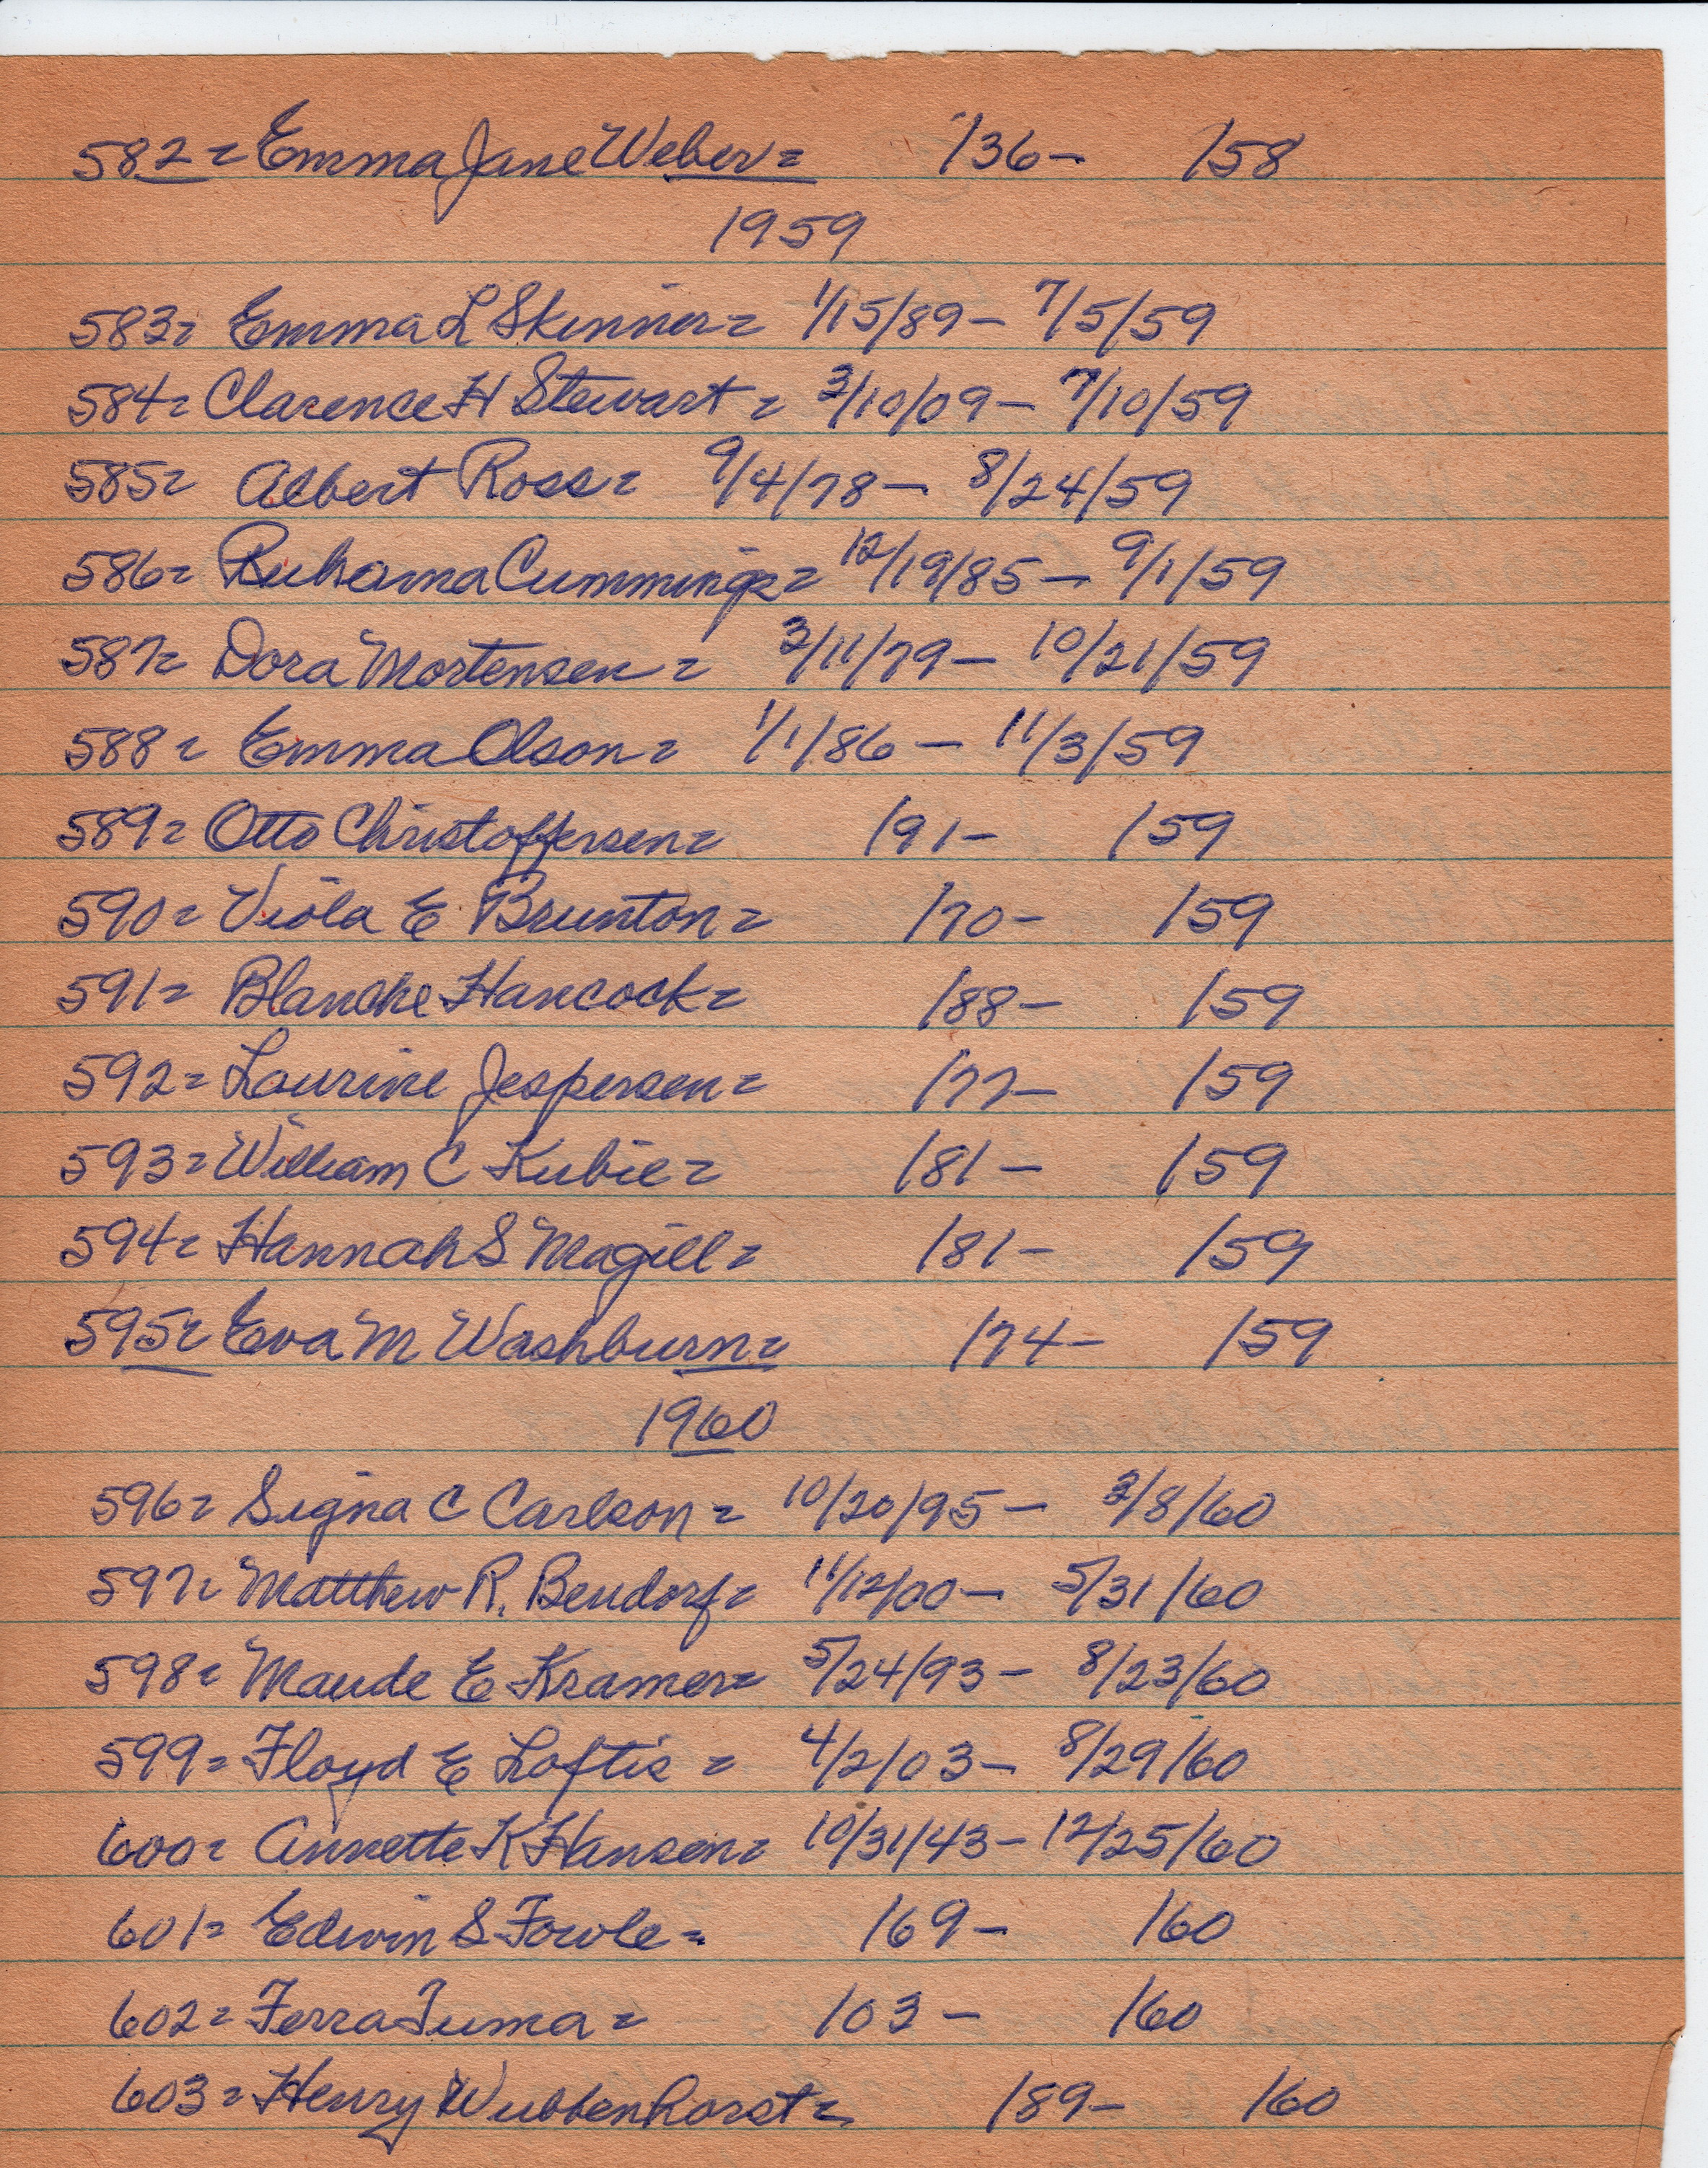 582= Emma Jane Weber= /36- /58
1959
583= Emma L Skinner= 1/15/89- 7/5/59
584= Clarence H Stewart= 3/10/09- 7/10/59
585= Albert Ross= 9/4/78- 8/24/59
586= Ruhama Cummings= 12/19/85- 9/1/59
587= Dora Mortensen= 3/11/79- 10/21/59
588= Emma Olson= 1/1/86- 11/3/59
589= Otto Christoffersen= /91- /59
590= Viola E Brunton= /70- /59
591= Blanche Hancock= /88- /59
592= Laurine Jespersen= /77- /59
593= William C Kubie= /81- /59
594= Hannah S Magill= /81- /59
595= Eva M Washburn= /74- /59
1960
596= Signa C Carlson= 10/20/95- 3/8/60
597= Matthew R. Bendorf= 11/12/00- 5/31/60
598= Maude E Kramer= 5/24/93- 8/23/60
599= Floyd E Loftis= 4/2/03- 8/29/60
600= Annette K Hansen= 10/31/43- 12/25/60
601= Edwin S Fowle= /69- /60
602= Ferra Tuma= /03- /60
603= Henry Wubbenhorst= /89- /60